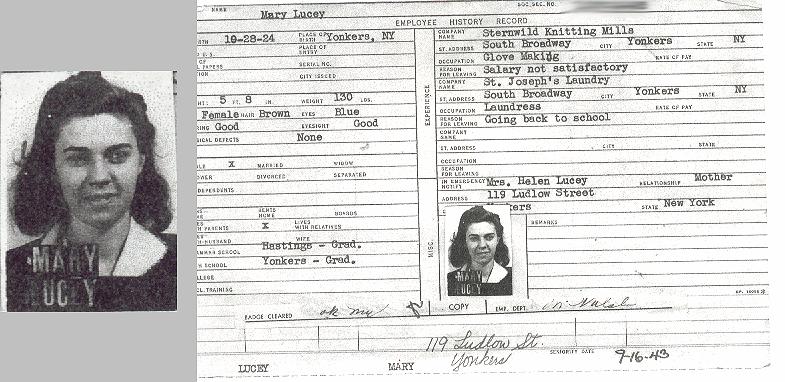 NAME Mary Lucey SOC. SEC. NO.
EMPLOYEE HISTORY RECORD
10-28-24 PLACE OF BIRTH Yonkers, NY
PLACE OF ENTRY
PAPERS SERIAL NO.
CITY ISSUED
5 FT. 8 IN. WEIGHT 130 LBS.
Female HAIR Brown EYES Blue
Good EYESIGHT Good
DEFECTS None
X MARRIED WIDOW
DIVORCED SEPARATED
DEPENDENTS
HOME BOARDS
PARENTS X LIVES WITH RELATIVES
HUSBAND WIFE
SCHOOL Hastings - Grad.
SCHOOL Yonkers - Grad.
TRAINING
EXPERIENCE
COMPANY NAME Sternwild Knitting Mills
ST. ADDRESS South Broadway CITY Yonkers STATE NY
OCCUPATION Glove Making RATE OF PAY
REASON FOR LEAVING Salary not satisfactory
COMPANY NAME St. Joseph's Laundry
ST. ADDRESS South Broadway CITY Yonkers STATE NY
OCCUPATION Laundress RATE OF PAY
REASON FOR LEAVING Going back to school
COMPANY NAME
ST. ADDRESS CITY STATE
OCCUPATION RATE OF PAY
REASON FOR LEAVING
MISC.
IN EMERGENCY NOTIFY Mrs. Helen Lucey RELATIONSHIP Mother
ADDRESS 119 Ludlow Street
kers STATE New York
REMARKS
MARY
UCEY
MARY
UCEY
BADGE CLEARED ok COPY EMP. DEPT.
119 Ludlow St.
Yonkers
SENIORITY DATE 9-16-43
LUCEY MARY